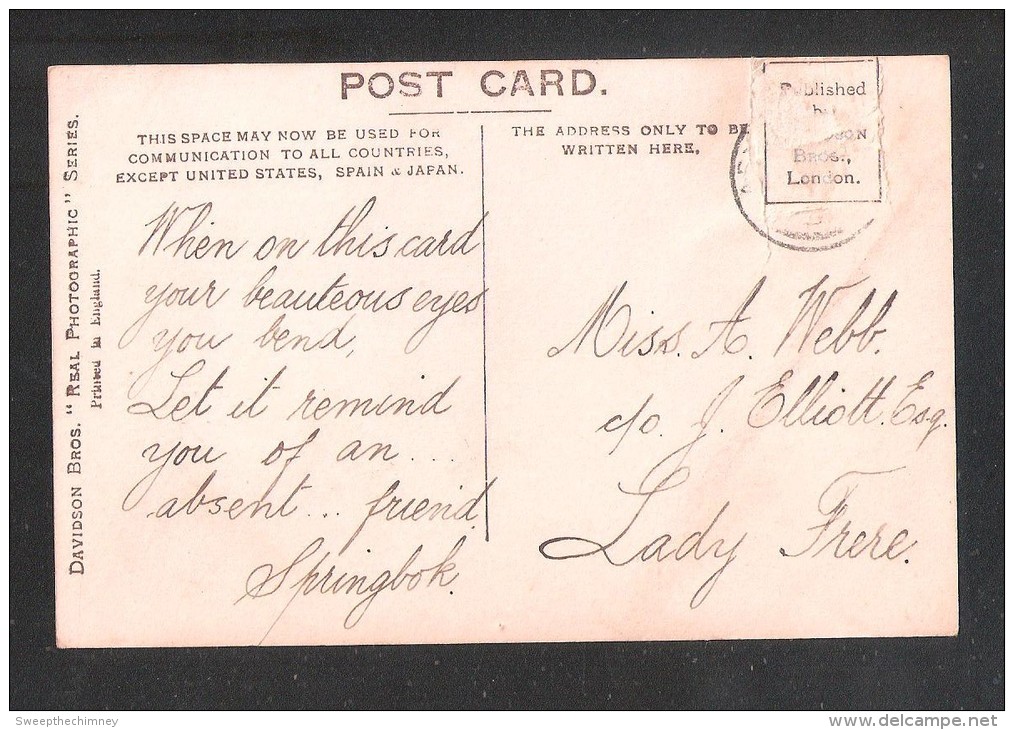 POST CARD.
THIS SPACE MAY NOW BE USED FOR
COMMUNICATION TO ALL COUNTRIES,
EXCEPT UNITED STATES, SPAIN & JAPAN.
When on this card
your beauteous eyes
you bend,
Let it remind
you of an ...
absent ... friend.
Springbok.
THE ADDRESS ONLY TO BE
WRITTEN HERE,
Published
Bros.,
London.
Miss. A. Webb.
c/o. J. Elliott. Esq.
Lady Frere.
DAVIDSON BROS. "REAL PHOTOGRAPHIC" SERIES.
Printed in England.
Sweepthechimney
www.delcampe.net